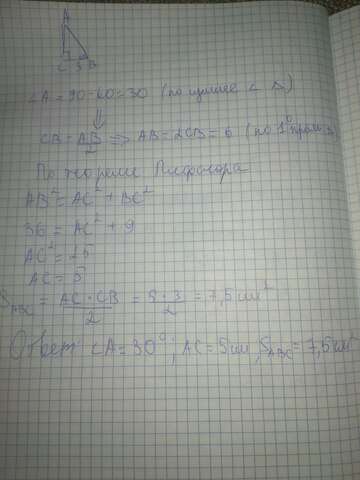 A
C 3 B
∠A = 90-60=30 (по сумме ∠ Δ)
⇓
CB = AB/2 ⇒ AB = 2CB = 6 (по
По теореме Пифагора
AB² = AC² + BC²
36 = AC² + 9
AC² = 25
AC = 5
S ABC = AC · CB / 2 = 5 · 3 / 2 = 7,5 см²
Ответ: ∠A = 30°; AC = 5 см, S ABC = 7,5 см²